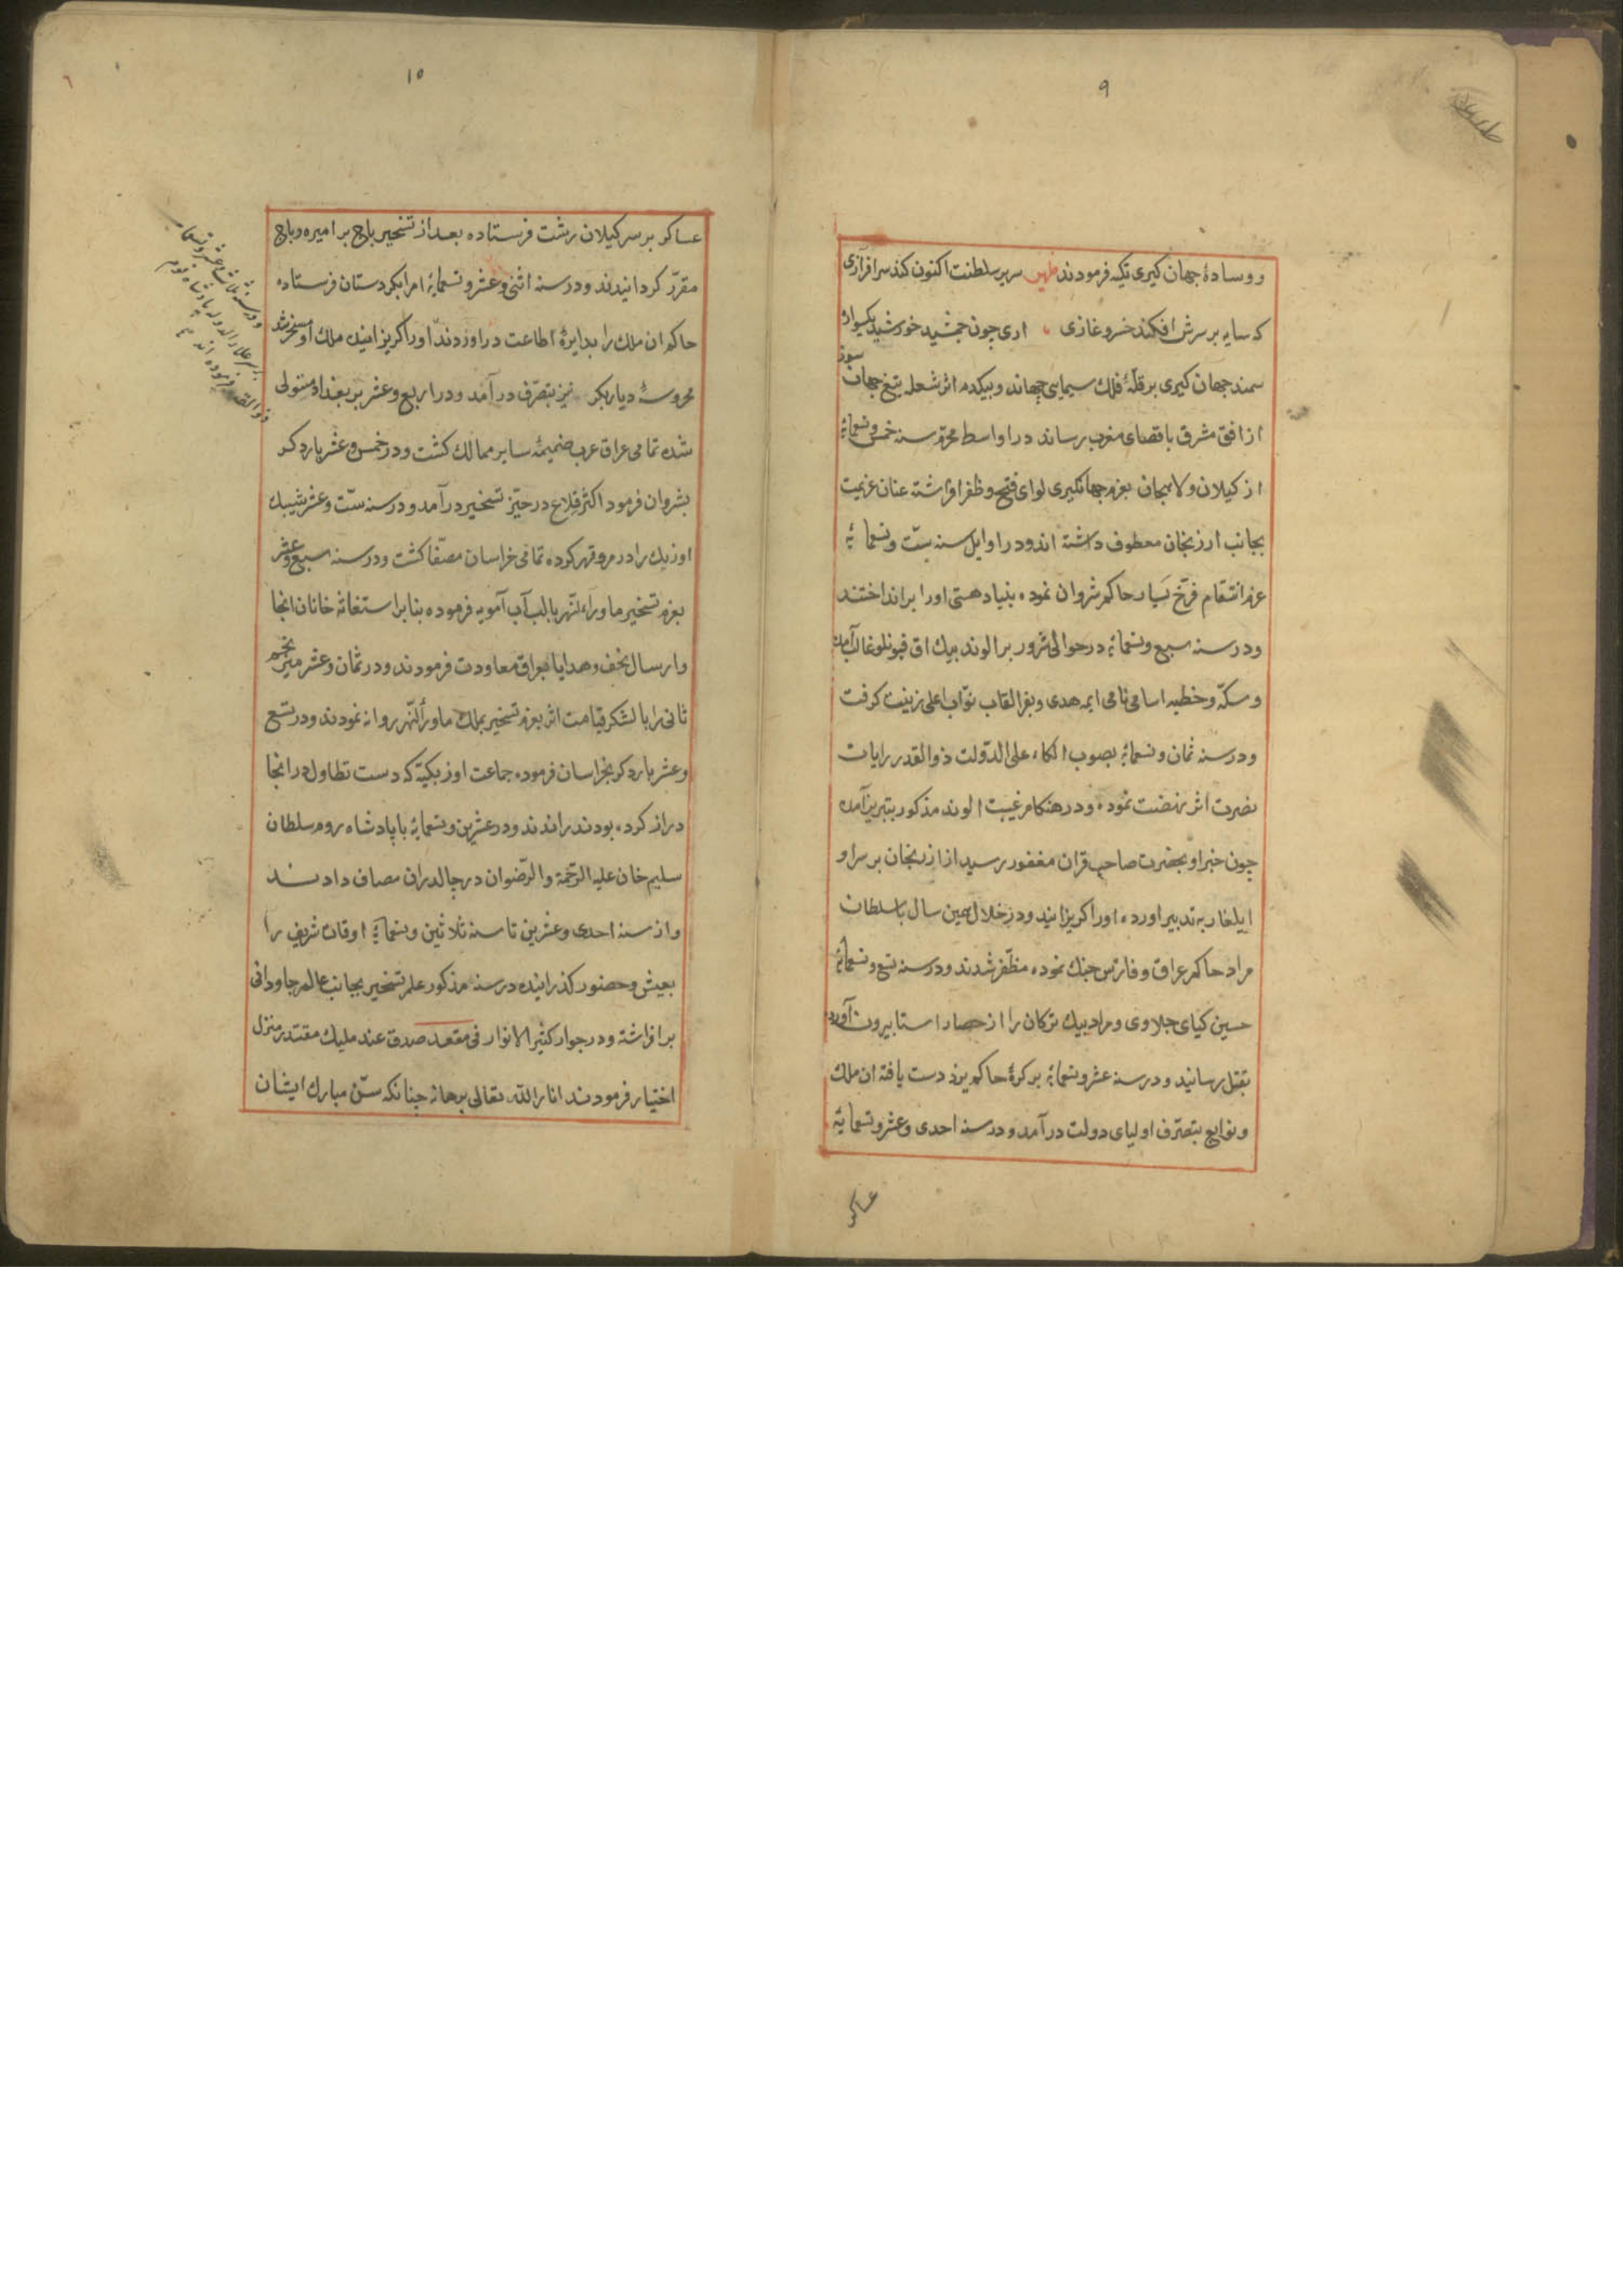 ٩
ووسادهٔ جهان کیری تکیه فرمودند سریر سلطنت اکنون کند سرافرازی
که سایه بر سرش افکند خسرو غازی اری چون جمشید خورشید یکسواره
سمند جهان کیری بر قلّهٔ فلک سیمایی جهاند و بیکدم اثر شعله تیغ جهان سوز
از افق مشرق باقصای مغرب رساند در اواسط محرم سنه خمس و تسعمایهٔ
از کیلان و لاهیجان بعزم جهانکیری لوای فتح و ظفر افراشته عنان عزیمت
بجانب ارزنجان معطوف داشته اند و در اوایل سنه ستّ و تسعمایهٔ
عزم انتقام فرّخ یسار حاکم شروان نموده بنیاد هستی اورا برانداختند
و در سنه سبع و تسعمایهٔ در حوالی شرور بر الوند بیک اق قیونلو غالب آمد
و سکّه و خطبه اسامی نامی ایمه هدی و بفر القاب نوّاب اعلی زینت کرفت
و در سنه ثمان و تسعمایهٔ بصوب الکاء علی الدّولت ذوالقدر رایات
نصرت اثر نهضت نموده و در هنکام غیبت الوند مذکور بتبریز آمده
چون خبر او بحضرت صاحب قران مغفور رسید از ارزنجان بر سر او
ایلغار به تدبیر اورده اورا کریزانیدند و در خلال همین سال با سلطان
مراد حاکم عراق و فارس جنک نموده مظفّر شدند و در سنه تسع و تسعمایهٔ
حسین کیای جلاوی و مراد بیک ترکمان را از حصار استا بیرون آورده
بقتل رسانید و در سنه عشر و تسعمایهٔ بر کرهٔ حاکم یزد دست یافته ان ملک
و توابع بتصرّف اولیای دولت درآمد و در سنه احدی و عشر و تسعمایة
عساکر
١٠
عساکر بر سر کیلان رشت فرستاده بعد از تسخیر باج بر امیره دباج
مقرّر کردانیدند و در سنه اثنی و عشر و تسعمایهٔ امرا بکردستان فرستاده
حاکم ان ملک را بدایرهٔ اطاعت دراوردند اورا کریزانیده ملک او مسخر شد
محروسهٔ دیاربکر نیز بتصرّف درآمد و در اربع و عشر بر بغداد مستولی
شده تمامی عراق عرب ضمیمهٔ سایر ممالک کشت و در خمس و عشر بار دکر
بشروان فرمود اکثر قلاع در حیّز تسخیر درآمد و در سنه ستّ و عشر شیبک
اوزبک را در مرو قهر کرده تمامی خراسان مصفّا کشت و در سنه سبع و عشر
بعزم تسخیر ماوراء النّهر بالب آب آمویه فرموده بنا بر استغاثه خانان انجا
و ارسال تحف و هدایا بعراق معاودت فرمودند و در ثمان و عشر میر نجم
ثانی را با لشکر قیامت اثر بعزم تسخیر بملک ماورأ النّهر روانه نمودند و در تسع
و عشر بار دکر بخراسان فرموده جماعت اوزبکیّه که دست تطاول در انجا
دراز کرده بودند راندند و در عشرین و تسعمایهٔ با پادشاه روم سلطان
سلیم خان علیه الرّحمة و الرّضوان در چالدران مصاف دادند
و از سنه احدی و عشرین تا سنه ثلاثین و تسعمایهٔ اوقات شریف را
بعیش و حضور کذرانیده در سنه مذکور علم تسخیر بجانب عالم جاودانی
برافراشته و در جوار کثیر الانوار فی مقعد صدق عند ملیك مقتدر منزل
اختیار فرمودند انار اللّه تعالی برهانه چنانکه سنّ مبارک ایشان